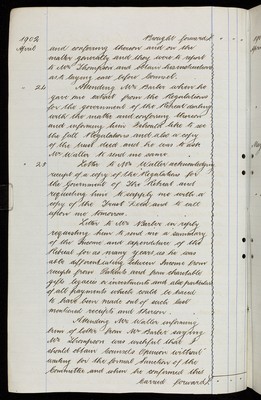 1902 Brought forward
April and conferring thereon and on the
matter generally and they were to report
to Mr Thompson and obtain his instructions
as to laying case before Counsel.
- 26 Attending Mr Barber when he
gave me extract from the Regulations
for the government of the Retreat dealing
with the matter and conferring thereon
and informing him I should like to see
the full Regulations and also a copy
of the trust deed and he was to ask
Mr Waller to send me same
- 28 Letter to Mr Waller acknowledging
receipt of a copy of the Regulations for
the Government of The Retreat and
requesting him to supply me with a
copy of the Trust Deed and to call
upon me tomorrow.
Letter to Mr Barber in reply
requesting him to send me a summary
of the Income and expenditure of the
Retreat for as many years as he was
able differentiating between Income from
receipts from Patients and from charitable
gifts legacies or investments and also particulars
of all payments which could be said
to have been made out of such last
mentioned receipts and thereon.
Attending Mr Waller informing
him of letter from Mr Baker saying
Mr Thompson was wishful that I
should obtain Counsel's Opinion without
waiting for the formal sanction of the
Committee and when he confirmed this
Carried forward